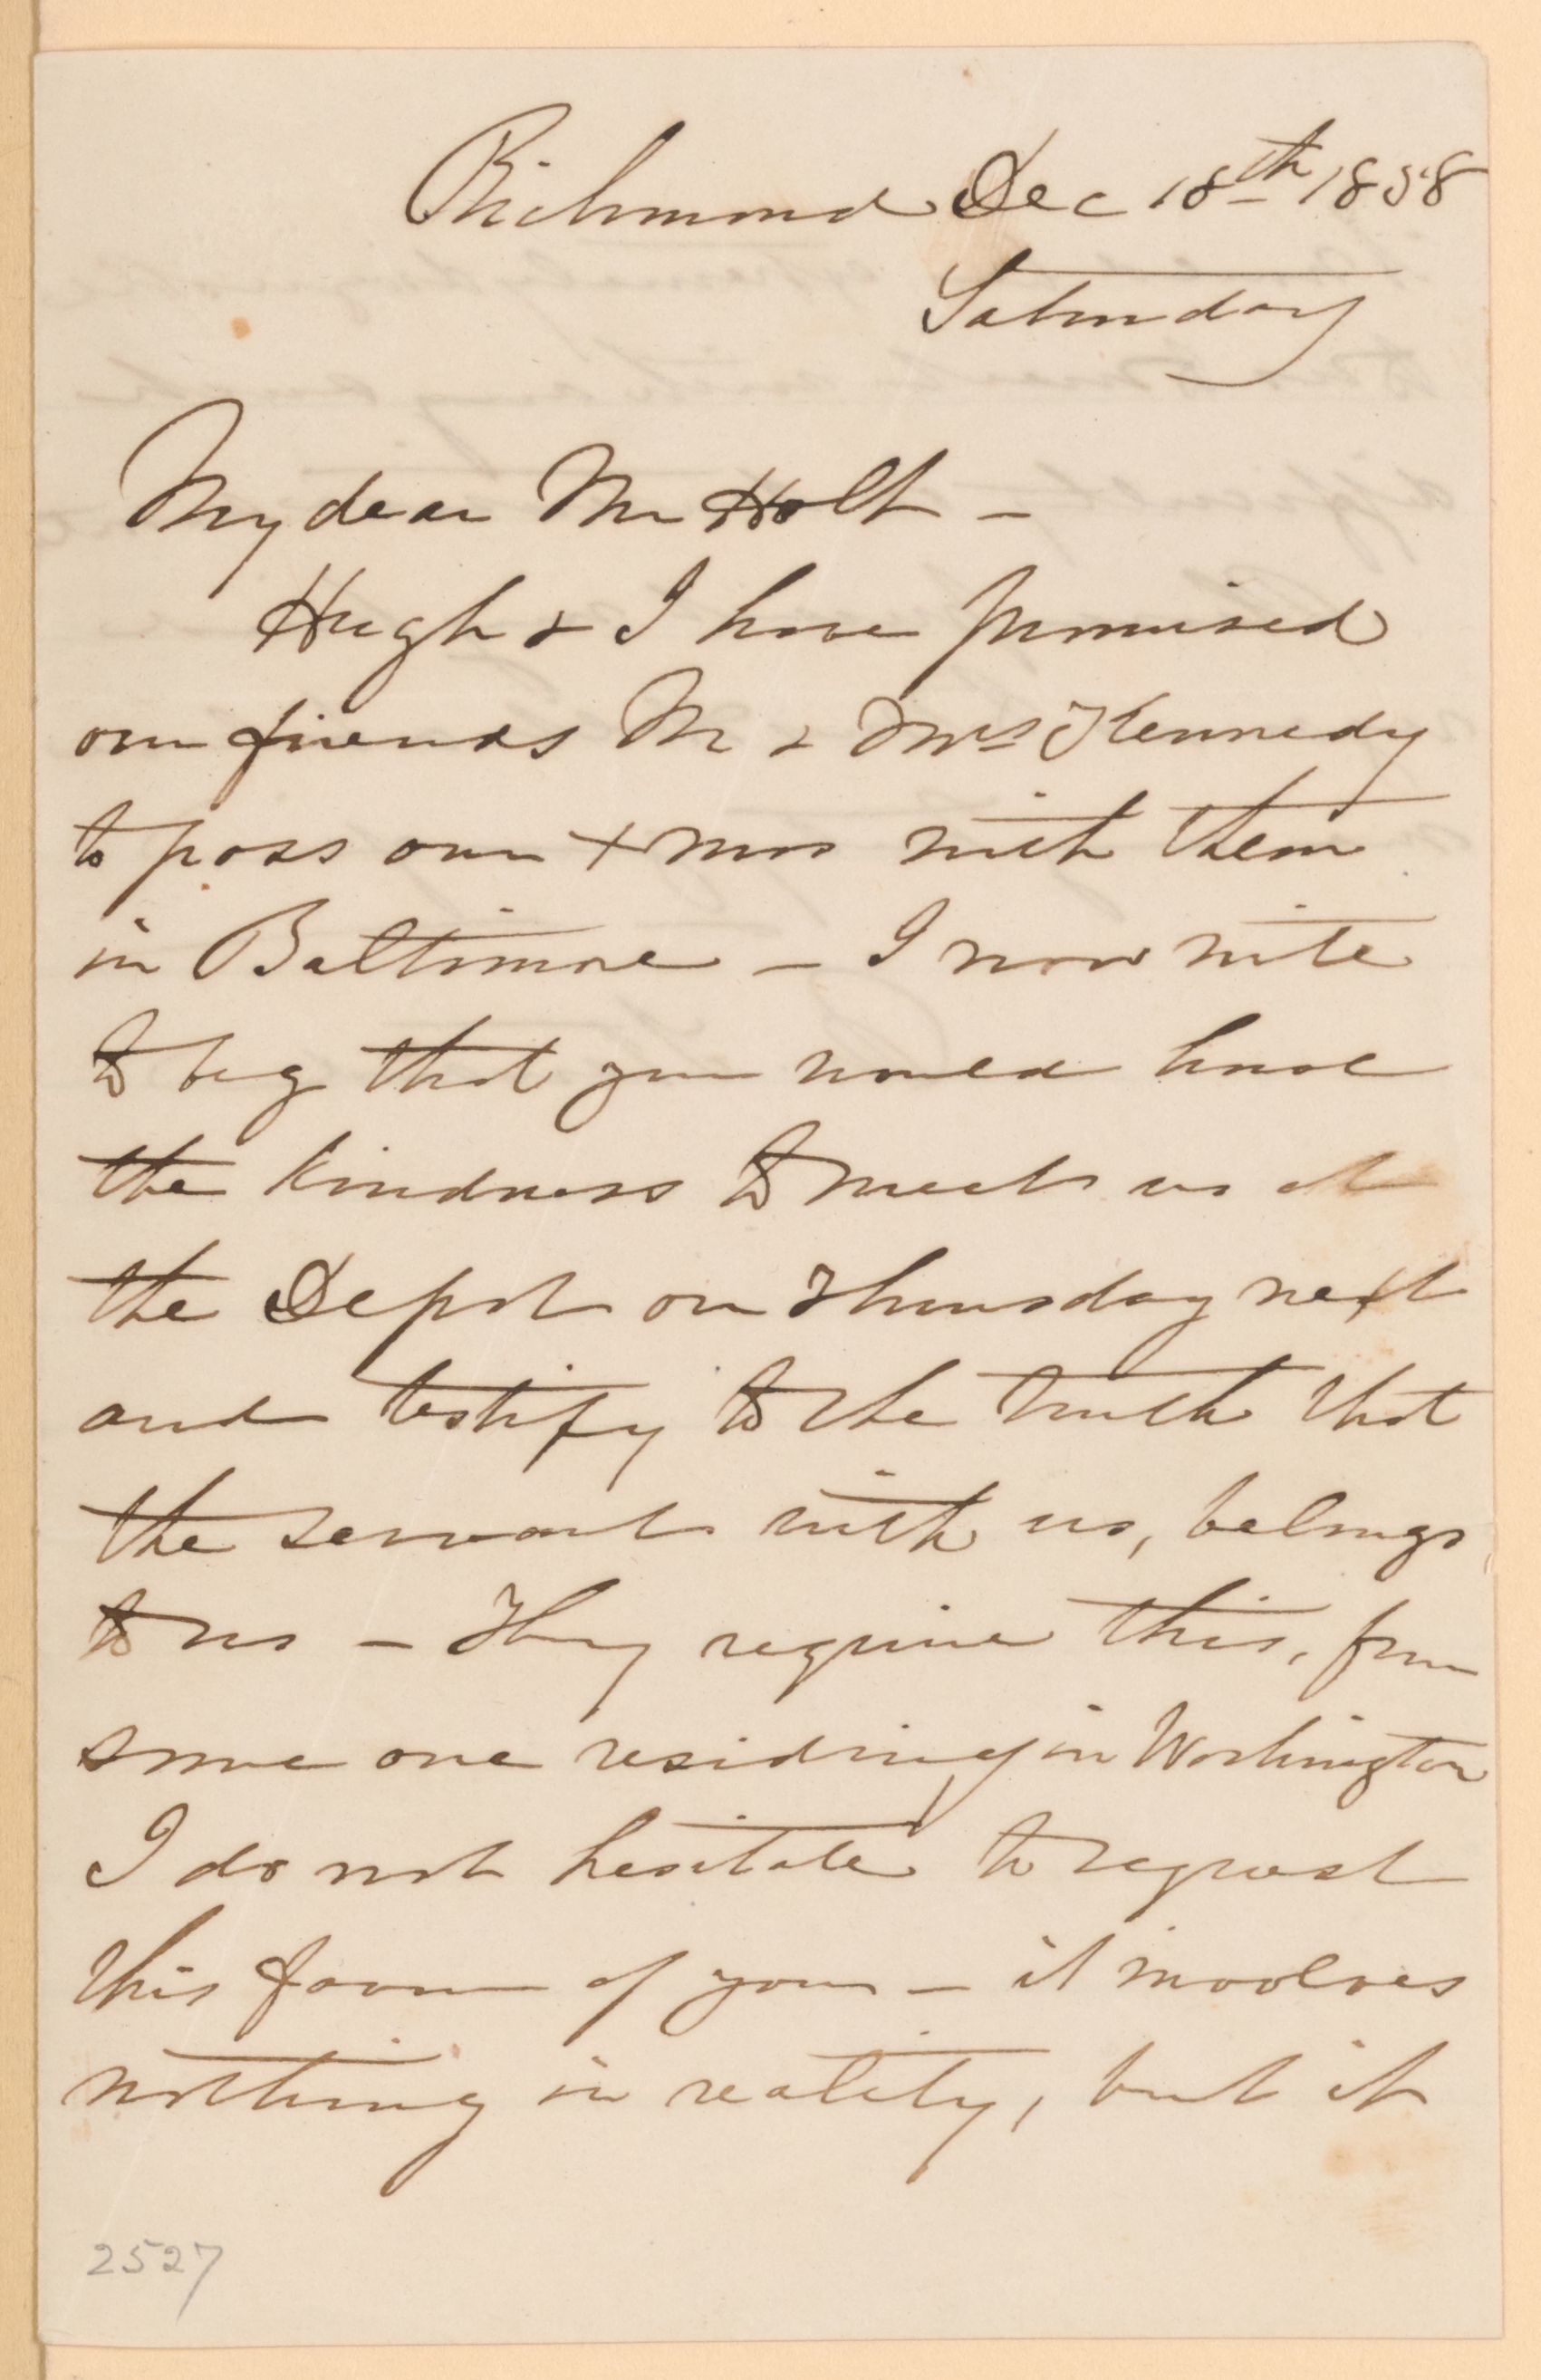 Richmond Dec 18th 1858
Saturday
My dear Mr Holt -
Hugh & I have promised
our friends Mr & Mrs Kennedy
to pass our Xmas with them
in Baltimore - I now write
to beg that you would have
the kindness to meet us at
the Depot on Thursday next
and testify to the truth that
the servant with us, belongs
to us - They require this, from
some one residing in Washington
I do not hesitate to request
this favor of you - it involves
nothing in reality, but it
2527